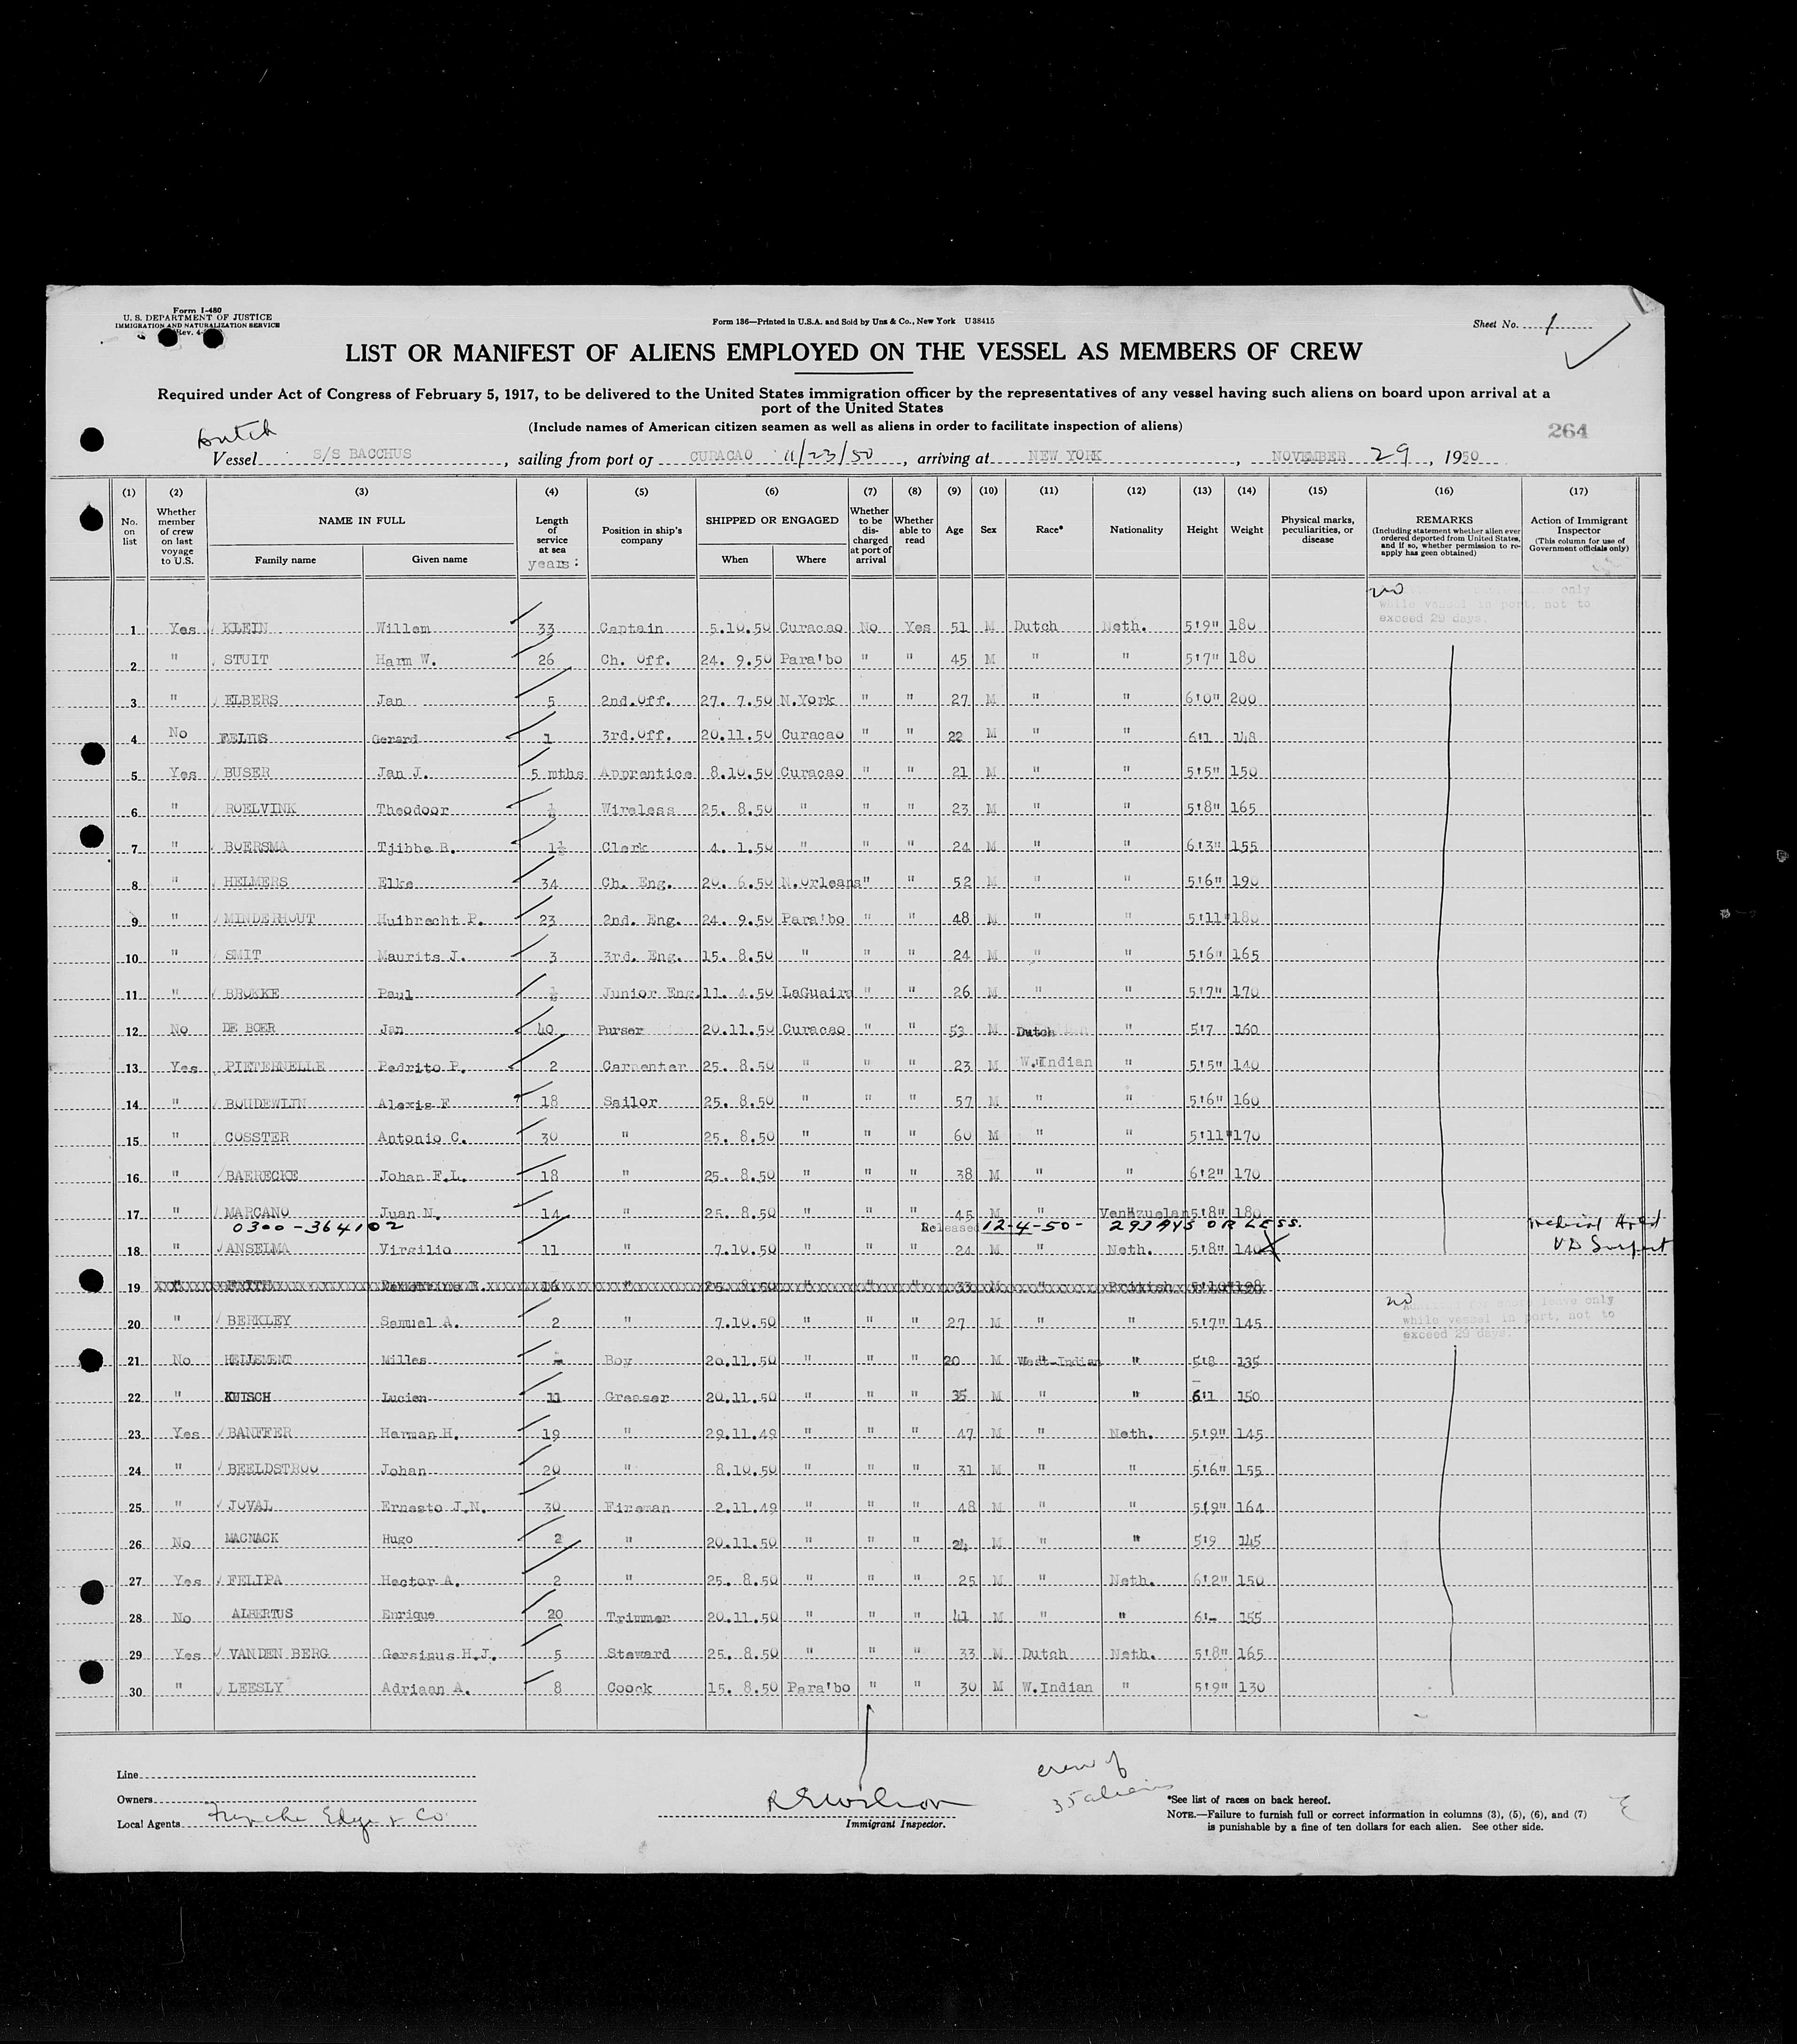 Form I-480
U. S. DEPARTMENT OF JUSTICE
IMMIGRATION AND NATURALIZATION SERVICE
Form 136—Printed in U.S.A. and Sold by Unz & Co., New York U38415
Sheet No. 1
LIST OR MANIFEST OF ALIENS EMPLOYED ON THE VESSEL AS MEMBERS OF CREW
Required under Act of Congress of February 5, 1917, to be delivered to the United States immigration officer by the representatives of any vessel having such aliens on board upon arrival at a
port of the United States
(Include names of American citizen seamen as well as aliens in order to facilitate inspection of aliens)
264
Dutch
Vessel S/S BACCHUS, sailing from port of CURACAO 11/23/50, arriving at NEW YORK, NOVEMBER 29, 1950
(1) (2) (3) (4) (5) (6) (7) (8) (9) (10) (11) (12) (13) (14) (15) (16) (17)
No. on list
Whether member of crew on last voyage to U.S.
NAME IN FULL
Family name Given name
Length of service at sea years:
Position in ship's company
SHIPPED OR ENGAGED
When Where
Whether to be discharged at port of arrival
Whether able to read
Age
Sex
Race*
Nationality
Height
Weight
Physical marks, peculiarities, or disease
REMARKS
(Including statement whether alien ever ordered deported from United States, and if so, whether permission to reapply has geen obtained)
Action of Immigrant Inspector
(This column for use of Government officials only)
no only
while vessel in port, not to
exceed 29 days.
1 Yes KLEIN Willem 33 Captain 5.10.50 Curacao No Yes 51 M Dutch Neth. 5'9" 180
2 " STUIT Harm W. 26 Ch. Off. 24. 9.50 Para'bo " " 45 M " " 5'7" 180
3 " ELBERS Jan 5 2nd.Off. 27. 7.50 N.York " " 27 M " " 6'0" 200
4 No Gerard 1 3rd.Off. 20.11.50 Curacao " " 22 M " " 6'1 148
5 Yes BUSER Jan J. 5 mths Apprentice 8.10.50 Curacao " " 21 M " " 5'5" 150
6 " ROELVINK Theodoor ½ Wireless 25. 8.50 " " " 23 M " " 5'8" 165
7 " BOERSMA Tjibbe B. 1½ Clerk 4. 1.50 " " " 24 M " " 6'3" 155
8 " HELMERS Elke 34 Ch. Eng. 20. 6.50 N.Orleans " " 52 M " " 5'6" 190
9 " MINDERHOUT Huibrecht P. 23 2nd. Eng. 24. 9.50 Para'bo " " 48 M " " 5'11" 180
10 " SMIT Maurits J. 3 3rd. Eng. 15. 8.50 " " " 24 M " " 5'6" 165
11 " BROKKE Paul ½ Junior Eng. 11. 4.50 LaGuaira " " 26 M " " 5'7" 170
12 No DE BOER Jan 40 Purser 20.11.50 Curacao " " 53 M Dutch " 5'7 160
13 Yes PIETERNELLE Pedrito P. 2 Carpenter 25. 8.50 " " " 23 M W.Indian " 5'5" 140
14 " BOUDEWIJN Alexis F 18 Sailor 25. 8.50 " " " 57 M " " 5'6" 160
15 " COSSTER Antonio C. 30 " 25. 8.50 " " " 60 M " " 5'11" 170
16 " BAERECKE Johan F.L. 18 " 25. 8.50 " " " 38 M " " 6'2" 170
17 " MARCANO Juan N. 14 " 25. 8.50 " " " 45 M " Venezuelan 5'8" 180
0300-364102 Released 12-4-50- 29 DAYS OR LESS. Medical Hold
18 " ANSELMA Virgilio 11 " 7.10.50 " " " 24 M " Neth. 5'8" 140 X VD Suspect
19 " 16 " 25. 8.50 " " " 33 M " British 5'10" 128
no Admitted for shore leave only
while vessel in port, not to
exceed 29 days.
20 " BERKLEY Samuel A. 2 " 7.10.50 " " " 27 M " " 5'7" 145
21 No HELLEMENT Milles - Boy 20.11.50 " " " 20 M West-Indian " 5'8 135
22 " KUISCH Lucien 11 Greaser 20.11.50 " " " 35 M " " 6'1 150
23 Yes BANFFER Herman H. 19 " 29.11.49 " " " 47 M " Neth. 5'9" 145
24 " BEELDSTROO Johan 20 " 8.10.50 " " " 31 M " " 5'6" 155
25 " JOVAL Ernesto J.N. 30 Fireman 2.11.49 " " " 48 M " " 5'9" 164
26 No MACNACK Hugo 2 " 20.11.50 " " " 24 M " " 5'9 145
27 Yes FELIPA Hector A. 2 " 25. 8.50 " " " 25 M " Neth. 6'2" 150
28 No ALBERTUS Enrique 20 Trimmer 20.11.50 " " " 41 M " " 6'- 155
29 Yes VANDEN BERG Gersinus H.J. 5 Steward 25. 8.50 " " " 33 M Dutch Neth. 5'8" 165
30 " LEESLY Adriaan A. 8 Coock 15. 8.50 Para'bo " " 30 M W.Indian " 5'9" 130
Line
Owners
Local Agents Funche Edye & Co
R E Wilson
Immigrant Inspector.
crew of
35 aliens
*See list of races on back hereof.
NOTE.—Failure to furnish full or correct information in columns (3), (5), (6), and (7)
is punishable by a fine of ten dollars for each alien. See other side.